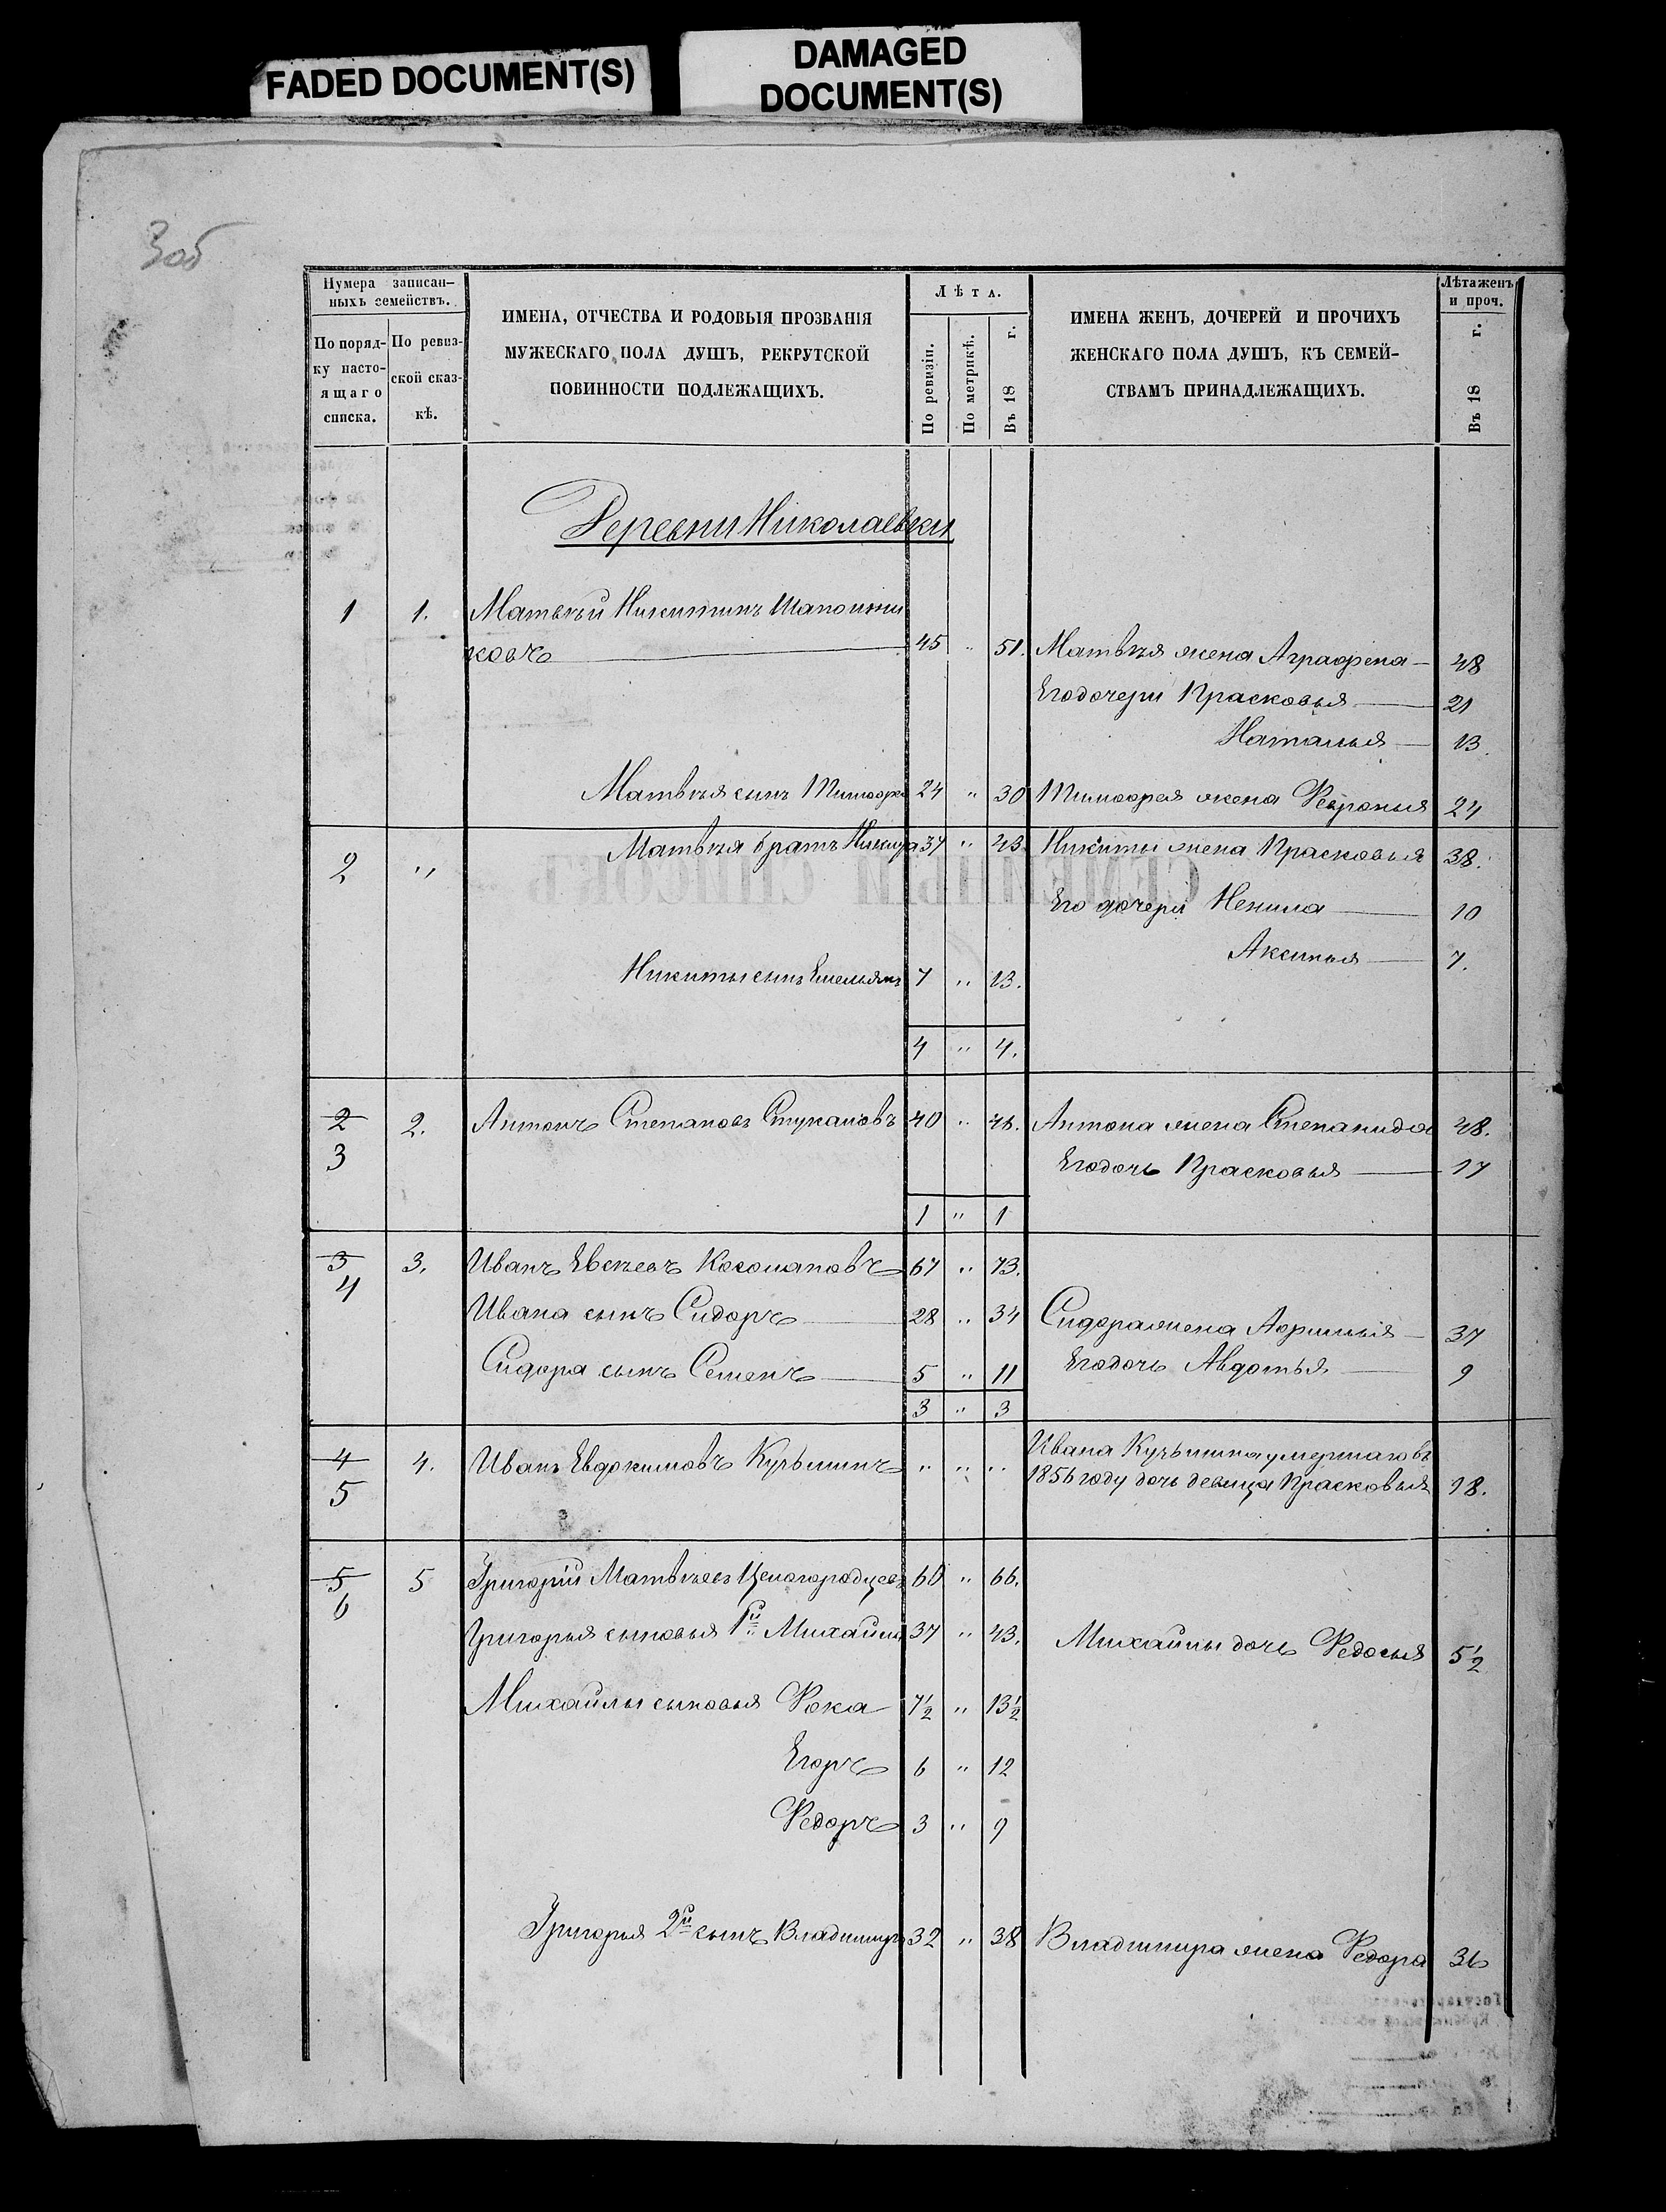 FADED DOCUMENT(S)
DAMAGED
DOCUMENT(S)
3об
Нумера записан-
ныхъ семействъ.
По поряд-
ку насто-
ящаго
списка.
По ревиз-
ской сказ-
кѣ.
ИМЕНА, ОТЧЕСТВА И РОДОВЫЯ ПРОЗВАНІЯ
МУЖЕСКАГО ПОЛА ДУШЪ, РЕКРУТСКОЙ
ПОВИННОСТИ ПОДЛЕЖАЩИХЪ.
Лѣта.
По ревизіи.
По метрикѣ.
Въ 18 г.
ИМЕНА ЖЕНЪ, ДОЧЕРЕЙ И ПРОЧИХЪ
ЖЕНСКАГО ПОЛА ДУШЪ, КЪ СЕМЕЙ-
СТВАМЪ ПРИНАДЛЕЖАЩИХЪ.
Лѣта женъ
и проч.
Въ 18 г.
Деревни Николаевки
1 1. Матвѣй Никитинъ
ковъ 45 " 51. Матвѣя жена Аграфена 48
Его дочери Прасковья 21
Наталья 13.
Матвѣя сынъ Тимофей 24 " 30 Тимофея жена Февронья 24
2 " Матвѣя братъ Никита 37 " 43 Никиты жена Прасковья 38.
Его дочери Ненила 10
Аксинья 7.
Никиты сынъ Емельянъ 7 " 13.
4 " 4.
2 2. Антонъ Степановъ Стукаловъ 40 " 46. Антона жена Степанида 48.
3 Его дочь Прасковья 17
1 " 1
3 3. Иванъ Евсѣевъ Косолаповъ 67 " 73.
4
Ивана сынъ Сидоръ 28 " 34 Сидора жена 37
Сидора сынъ Семенъ 5 " 11 Его дочь Авдотья 9
3 " 3
4 4. Иванъ Евдокимовъ Кузьминъ " " " Ивана Кузьмина умершаго въ
5 1856 году дочь девица Прасковья 18.
5 5 Григорій Матвѣевъ 60 " 66.
6
Григорья сыновья 1й Михайла 37 " 43. Михайлы дочь Федосья 5½
Михайлы сыновья Фока 7½ " 13½
Егоръ 6 " 12
Федоръ 3 " 9
Григорья 2й сынъ Владимиръ 32 " 38 Владимира жена Федора 36